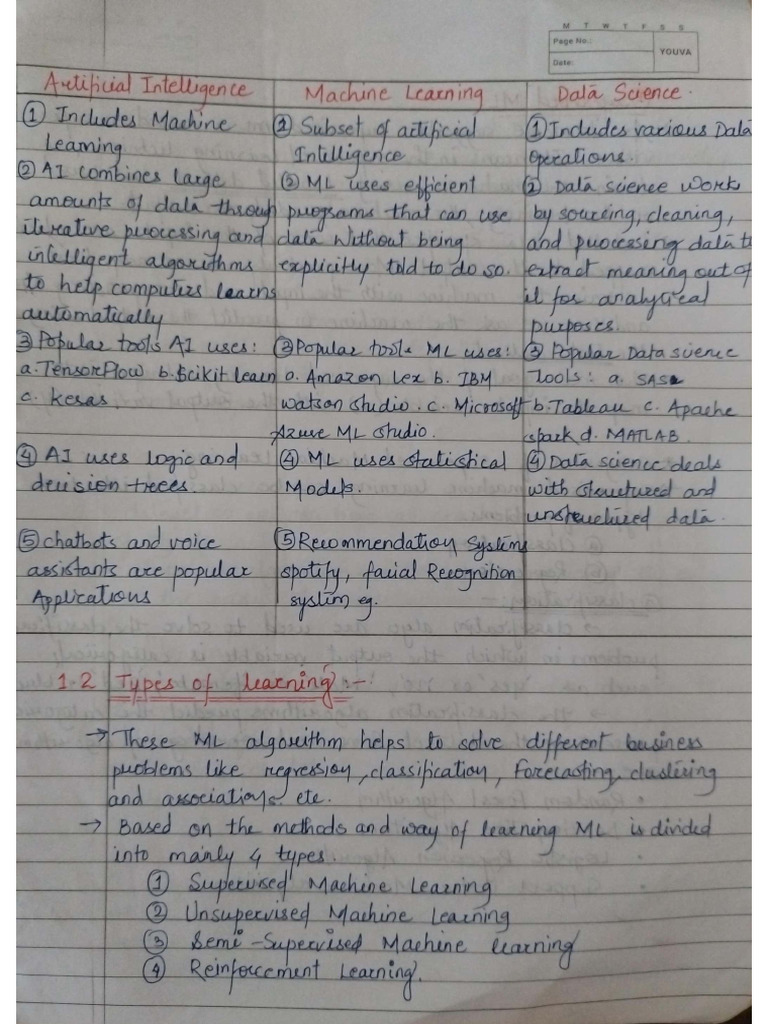 M T W T F S S
Page No.:
YOUVA
Date:
Artificial Intelligence
① Includes Machine
Learning
② AI combines large
amounts of data through
iterative processing and
intelligent algorithms
to help computers learns
automatically
③ Popular tools AI uses:
a. TensorFlow b. Scikit learn
c. Keras.
④ AI uses logic and
decision trees.
⑤ chatbots and voice
assistants are popular
Applications
Machine Learning
① Subset of artificial
Intelligence
② ML uses efficient
programs that can use
data without being
explicitly told to do so.
③ Popular tools ML uses:
a. Amazon Lex b. IBM
Watson Studio. c. Microsoft
Azure ML Studio.
④ ML uses statistical
Models.
⑤ Recommendation Systems
spotify, facial Recognition
system eg.
Data Science.
① Includes various Data
operations.
② Data science work
by sourcing, cleaning,
and processing data to
extract meaning out of
it for analytical
purposes.
③ Popular Data science
Tools: a. SAS
b. Tableau c. Apache
spark d. MATLAB
④ Data science deals
with structured and
unstructured data.
1.2 Types of learning :-
→ These ML algorithm helps to solve different business
problems like regression, classification, Forecasting, clustering
and associations etc.
→ Based on the methods and way of learning ML is divided
into mainly 4 types.
① Supervised Machine Learning
② Unsupervised Machine Learning
③ Semi-Supervised Machine learning
④ Reinforcement Learning.